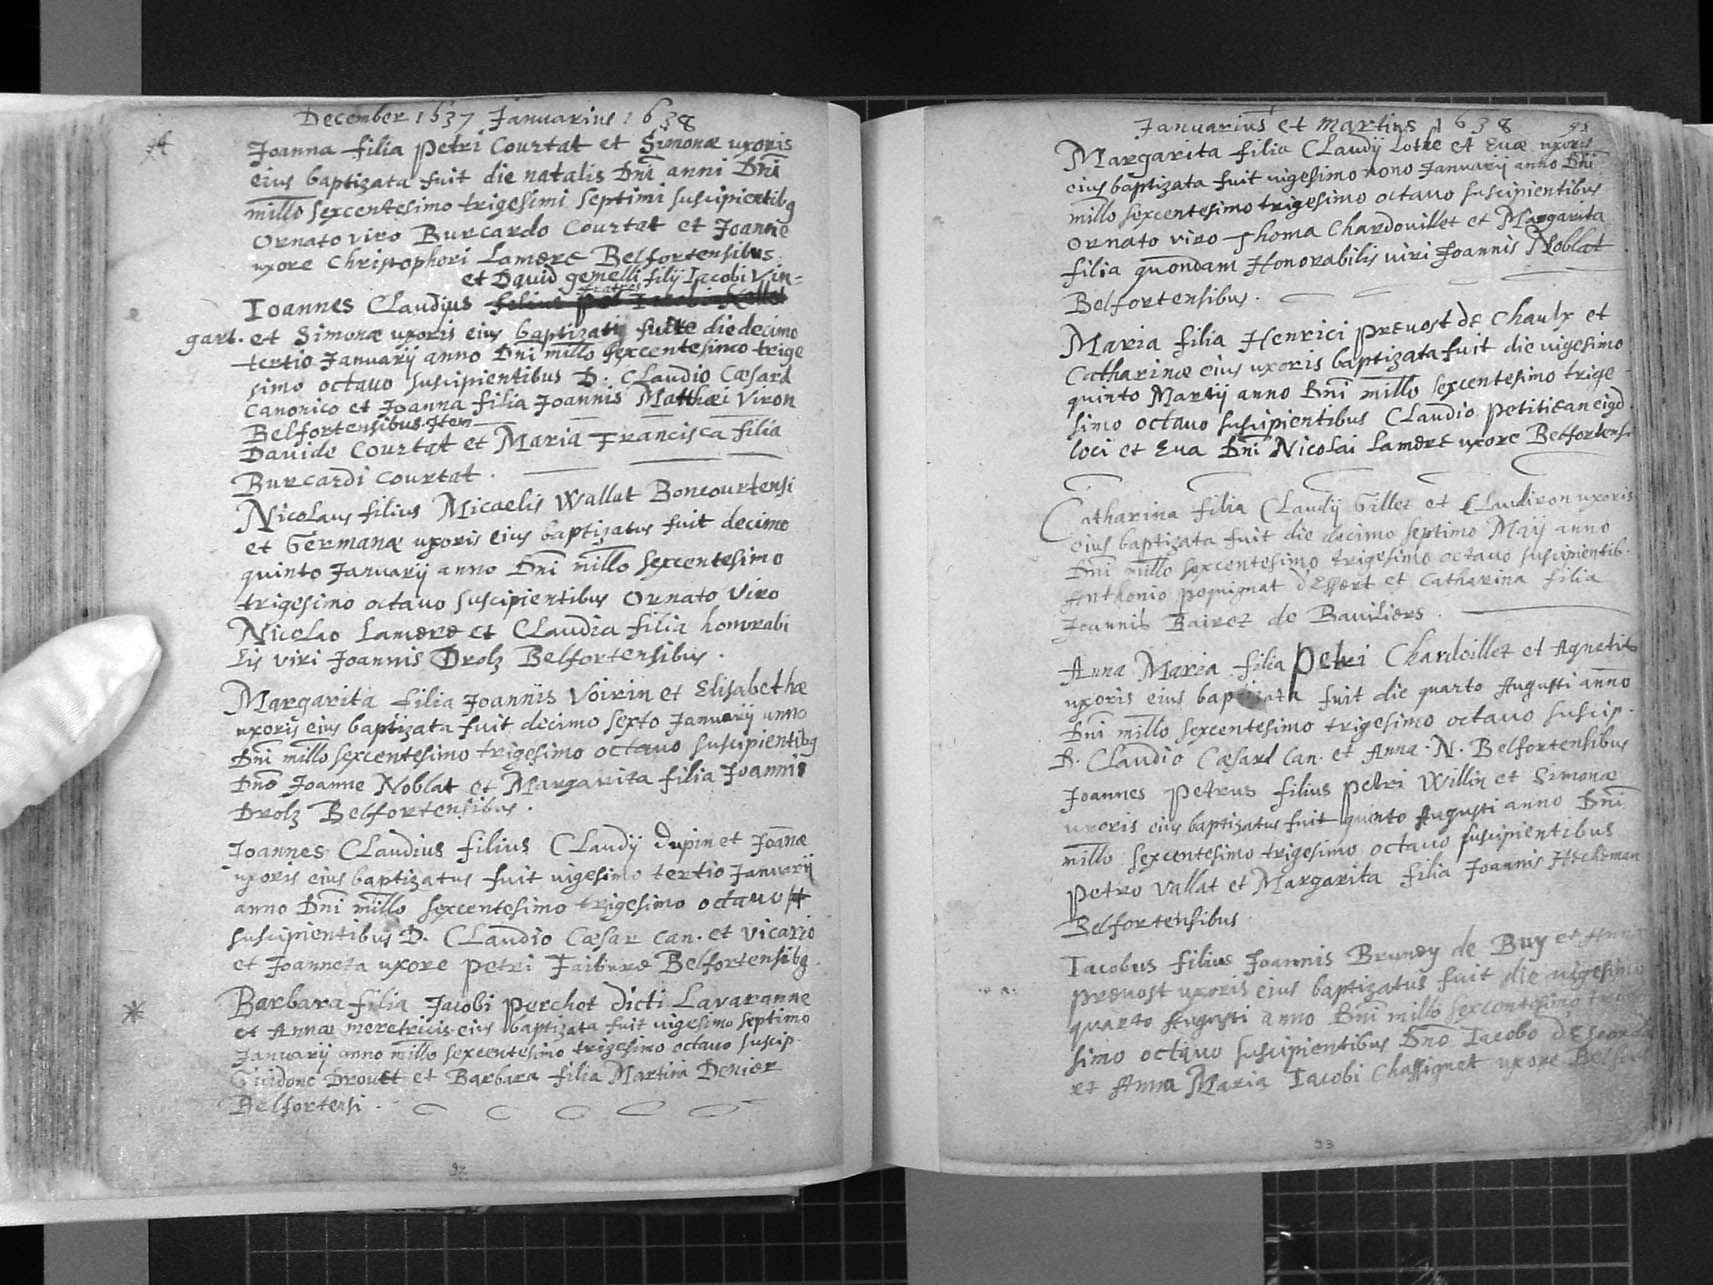 December 1637 Januarius 1638
Joanna filia petri Courtat et Simonæ uxoris
eius baptizata fuit die natalis Dni anni Dni
millo sexcentesimo trigesimi septimi suscipientibg
Ornato viro Burcardo Courtat et Joanne
uxore Christopheri Lamere Belfortensibus
et David gemelli filij Iacobi Vin=
fratres
Ioannes Claudius
gart. et Simonæ uxoris eius baptizatij fuire die decimo
tertio Januarij anno Dni millo sexcentesimo trige
simo octavo suscipientibus D. Claudio Cæsard
Canonico et Joanna filia Joannis Matthæi Viron
Belfortensibus. Item
Davide Courtat et Maria Francisca filia
Burcardi Courtat.
Nicolaus filius Micaelis Wallat Boncourtensi
et Germanæ uxoris eius baptizatus fuit decimo
quinto Januarij anno Dni millo sexcentesimo
trigesimo octavo suscipientibus Ornato Viro
Nicolao Lamere et Claudia filia honorabi
lis viri Joannis Drolz Belfortensibus.
Margarita filia Joannis Voirin et Elisabethæ
uxoris eius baptizata fuit decimo sexto Januarij anno
Dni millo sexcentesimo trigesimo octavo suscipientibg
Dno Joanne Noblat et Margarita filia Joannis
Drolz Belfortensibus.
Joannes Claudius filius Claudij dupin et Joanæ
uxoris eius baptizatus fuit uigesimo tertio Januarij
anno Dni millo sexcentesimo trigesimo octavo
suscipientibus D. Claudio Cæsar can. et vicario
et Joanneta uxore petri Taiture Belfortensibg.
* Barbara filia Jacobi perchot dicti Lavaranne
et Annæ meretricis eius baptizata fuit uigesimo septimo
Januarij anno millo sexcentesimo trigesimo octavo suscip.
Guidone Drouet et Barbara filia Martini Denier
Belfortensi.
92
Januarius et Martius 1638
Margarita filia Claudij Lothe et Euæ uxoris
eius baptizata fuit uigesimo nono Januarij anno Dni
millo sexcentesimo trigesimo octavo suscipientibus
Ornato viro Thoma Chardouillet et Margarita
filia quondam Honorabilis viri Joannis Noblat
Belfortensibus.
Maria filia Henrici prevost de Chaulx et
Catharinæ eius uxoris baptizata fuit die uigesimo
quinto Martij anno Dni millo sexcentesimo trige
simo octavo suscipientibus Claudio petitiean eigd.
loci et Eua Dni Nicolai Lamere uxore Belfortensi.
Catharina filia Claudij Gillet et Claudiron uxoris
eius baptizata fuit die decimo septimo Maij anno
Dni millo sexcentesimo trigesimo octavo suscipientib.
Anthonio poquignat d'Essert et Catharina filia
Joannis Bairet de Bauiliers.
Anna Maria filia Petri Chardoillet et Agnetis
uxoris eius baptizata fuit die quarto Augusti anno
Dni millo sexcentesimo trigesimo octavo suscip.
D. Claudio Cæsard Can. et Anna N. Belfortensibus
Joannes petrus filius petri Willin et Simonæ
uxoris eius baptizatus fuit quinto Augusti anno Dni
millo sexcentesimo trigesimo octavo suscipientibus
petro Vallat et Margarita filia Joannis Heckeman
Belfortensibus.
Iacobus filius Joannis Bruney de Buy et Anna
prevost uxoris eius baptizatus fuit die uigesimo
quarto Augusti anno Dni millo sexcentesimo trige
simo octavo suscipientibus Dno Iacobo
et Anna Maria Iacobi Chassignet uxore
93